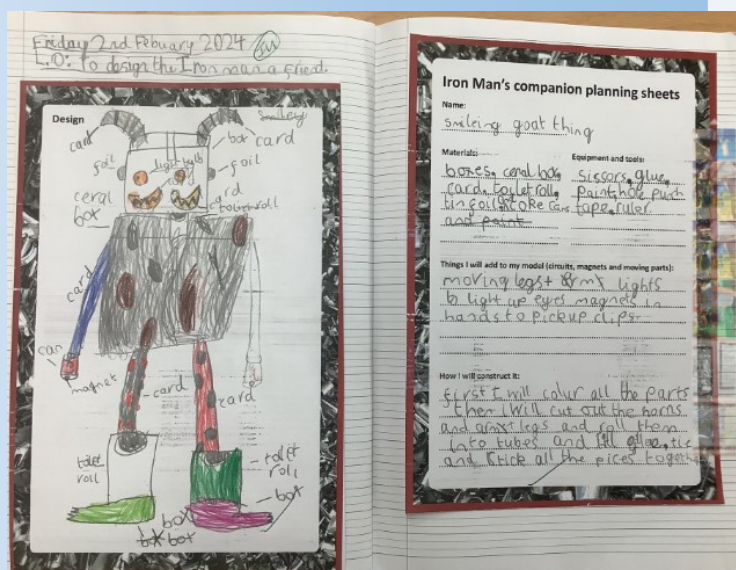 Friday 2nd Febuary 2024
L.O: To design the Iron man a friend.
Design
card
box card
foil
light bulb
foil
ceral
box
card
toilet roll
card
can
magnet
card
card
tolet
roll
tolet
roll
box
box
box
Iron Man's companion planning sheets
Name:
smileing goat thing
Materials:
boxes, ceral box,
card, toilet roll,
tin foil, coke can,
and paint
Equipment and tools:
sissors, glue,
paint, hole punc
tape, ruler
Things I will add to my model (circuits, magnets and moving parts):
moving legs + arms lights
to light up eyes magnets in
hands to pick up clips.
How I will construct it:
first I will colur all the parts
then i will cut out the horns
and arms + legs and roll them
into tubes and I'll glue, tie
and stick all the pices together